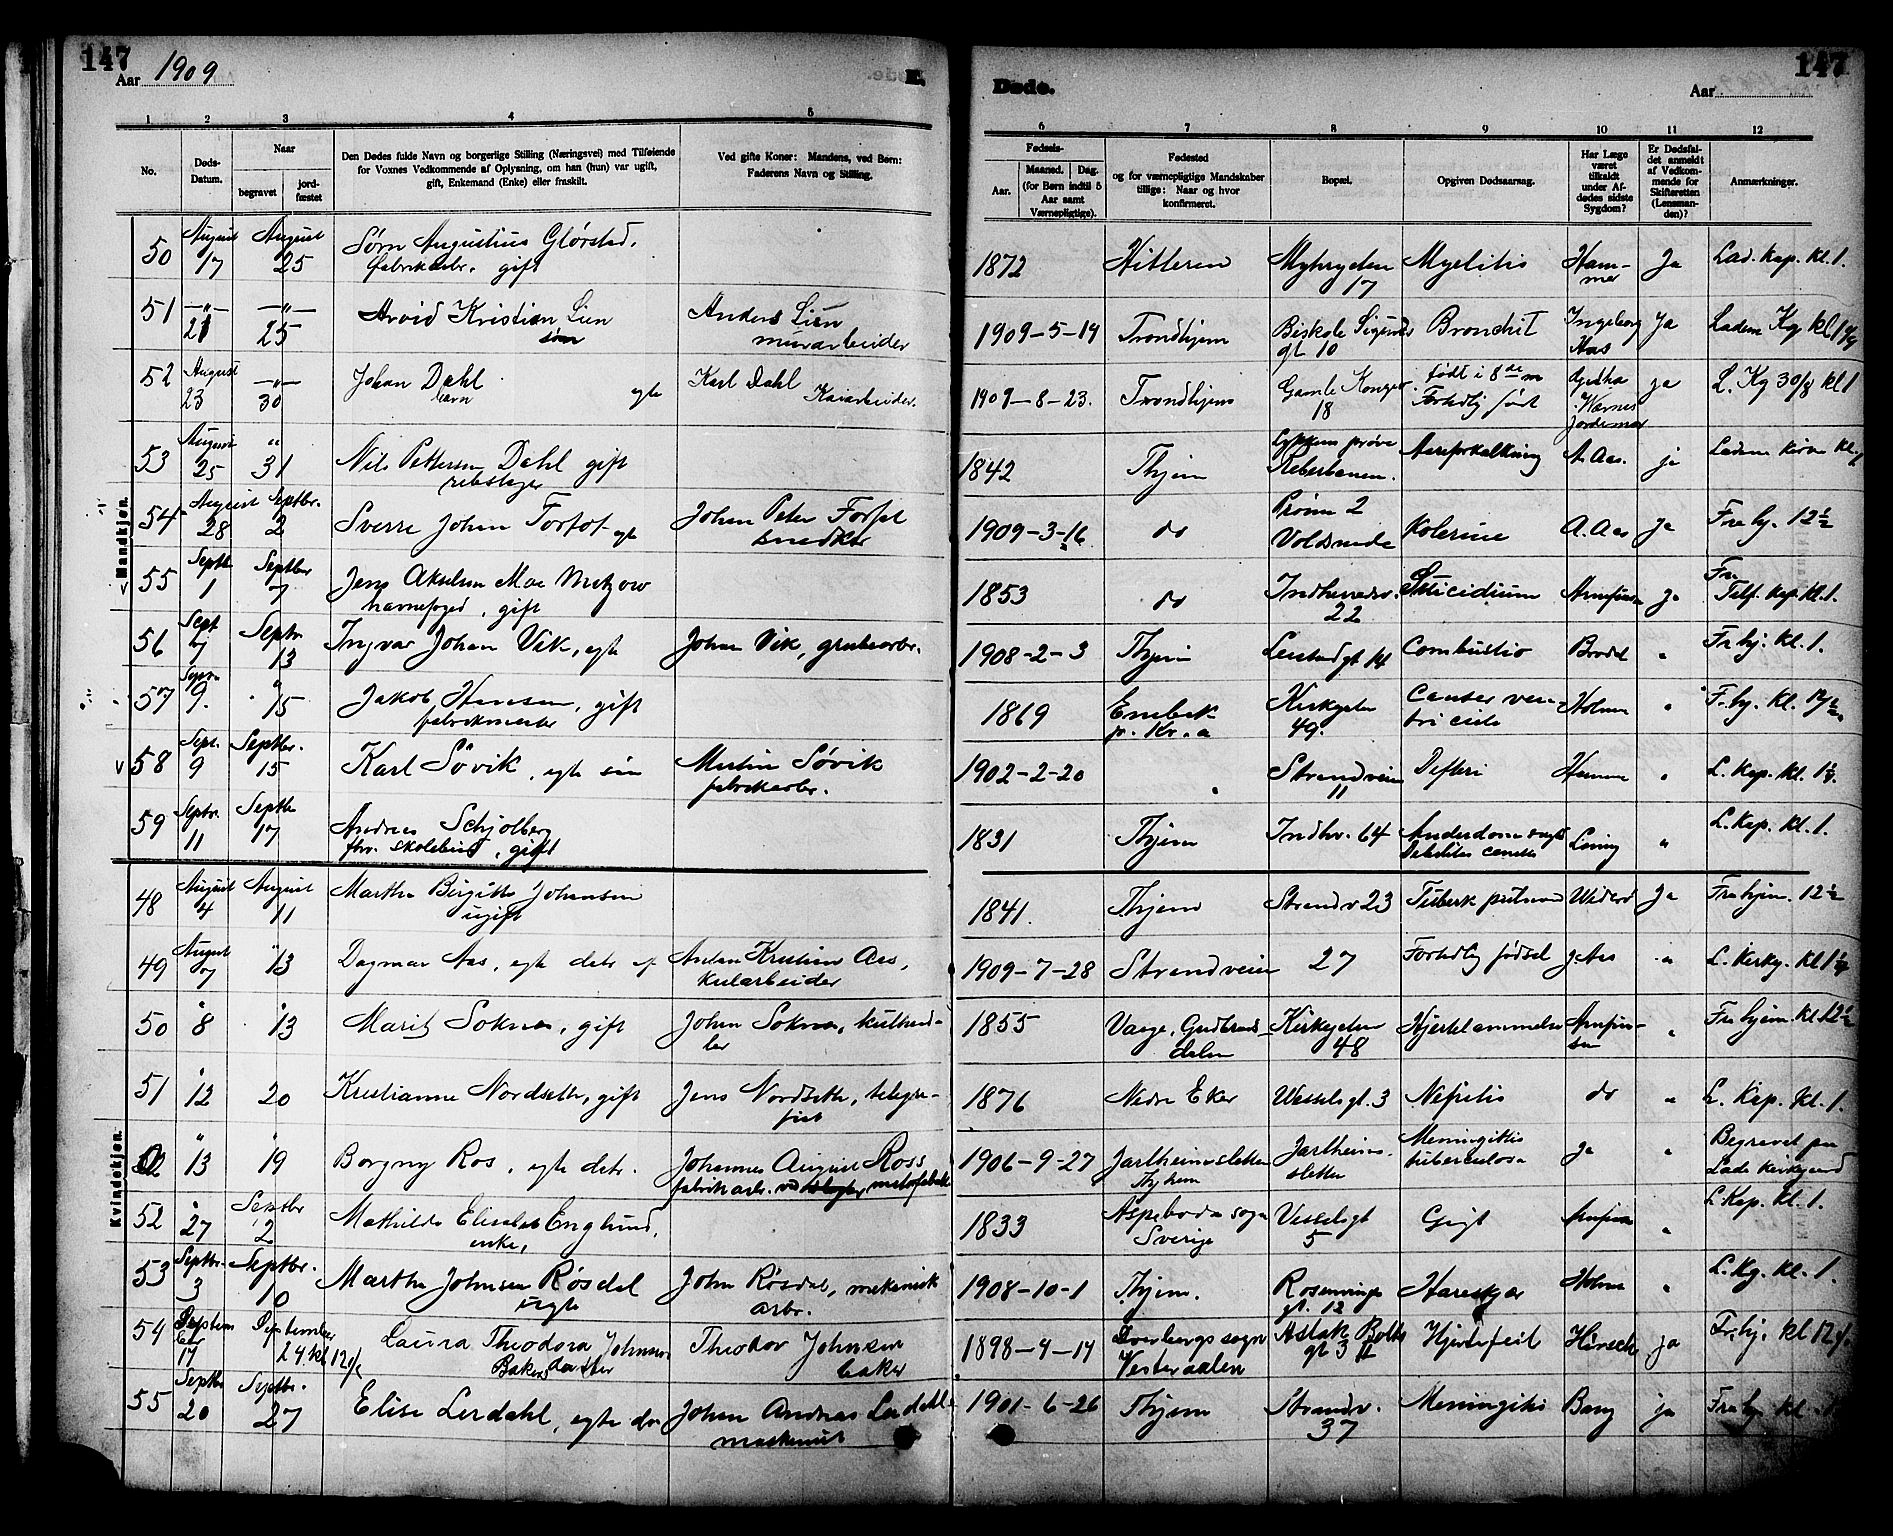 147
Aar 1909
E.
Døde.
Aar
147
1 2 3 4 5 6 7 8 9 10 11 12
No.
Døds-Datum.
Naar
begravet
jordfæstet
Den Dødes fulde Navn og borgerlige Stilling (Næringsvei) med Tilføiende
for Voxnes Vedkommende af Oplysning, om han (hun) var ugift,
gift, Enkemand (Enke) eller fraskilt.
Ved gifte Koner: Mandens, ved Børn:
Faderens Navn og Stilling.
Fødsels-
Aar.
Maaned. Dag.
(for Børn indtil 5
Aar samt
Værnepligtige).
Fødested
og for værnepligtige Mandskaber
tillige: Naar og hvor
konfirmeret.
Bopæl.
Opgiven Dødsaarsag.
Har Læge
været
tilkaldt
under Afdødes sidste
Sygdom?
Er Dødsfaldet anmeldt
af Vedkommende for
Skifteretten
(Lensmanden)?
Anmærkninger.
Mandkjøn.
50 August 17 August 25 Sørn Augustius Glørstad, 1872 Hitteren Myhryden 17 Myelitis Hammer Ja Lad. kap. kl. 1.
fabrikarbr. gift
51 -"- 21 -"- 25 Arvid Kristian Lien Anders Lien 1909-5-19 Trondhjem gt 10 Bronchit Ingeborg Aas Ja
søn murarbeider
52 August 23 -"- 30 Johan Dahl egte Karl Dahl 1909-8-23. Trondhjem 18 født i 8de m ja L. Kg 30/8 kl 1
barn Kaiarbeider. Fortidlig født Jordemor
53 August 25 " 31 Nils Pettersen Dahl gift 1842 Thjem Reberbanen. Aareforkalkning A. Aas. ja
rebslager
54 August 28 Septbr. 2 Sverre Johan Forfot egte Johan Peter Forfot 1909-3-16 do Voldsminde Kolerine A. Aas ja Fra hj. 12½
snedker
55 Septbr 1 Septbr 7 Jens Akselsen Moe Metzow 1853 do Indherredsv. 22 Suicidium Arnfinsen Ja kap. kl. 1.
havnefoged, gift
56 Sept 7 Septbr 13 Ingvar Johan Vik, egte Johan Vik, grubearbr. 1908-2-3 Thjem 14 Combustio " Fr hj. kl. 1.
57 Septbr 9. " 15 Jakob Hansen, gift 1869 Enebak p. Kr.a Kirkegaten 49. Cancer ventriculi Holmen " Fr. hj. kl. 12½
58 Sept. 9 Septbr. 15 Karl Søvik, egte søn Martin Søvik 1902-2-20 " Strandveien 11 Difteri Hammer " L. Kap. kl. 1½.
fabrikarbr.
59 Septbr. 11 Septbr 17 Andreas Schjølberg 1831 Thjem Indhv. 64 " L. Kap. kl. 1.
fhv. skolebud, gift
Kvindekjøn.
48 August 4 August 11 Martha Birgitte Johansen 1841. Thjem Strandv 23 Tuberk pulmon Widerø Ja Fra hjem. 12½
ugift
49 August 7 " 13 Dagmar Aas, egte datr af Anton Kristian Aas, 1909-7-28 Strandveien 27 Fortidlig fødsel Aas " L. Kirkg. kl 1½
kularbeider
50 " 8 " 13 Marit Sokna, gift Johan Sokna, kulhandler 1855 Vaage, Gudbrandsdalen Kirkegaten 48 Hjertelammelse Arnfinsen " Fr hjem. kl 12½
51 " 12 20 Kristianne Nordseth, gift Jens Nordseth, telegrafist 1876 Nedre Eker Wesselsgt. 3 Nefritis do " L. Kap. kl. 1.
" 13 " 19 Borgny Ros, egte datr. Johannes August Ross 1906-9-27 Jarlheimsletten Thjhem Jarlheimsletten Meningitis tuberculosa ja " Begravet paa Lade kirkegaard
52 " 27 Septbr 2 Mathilde Elisabet Englund, 1833 Aspeboda sogn Sverige Vesselsgt 5 Gigt Arnfinsen " L. Kap. kl. 1.
enke,
53 Septbr. 3 Septbr. 10 Martha Johnsen Røsdal John Røsdal, mekanisk 1908-10-1 Thjem. gt. 12 Holmen " L. Kg. kl. 1.
uegte arbr.
54 September 17 September 24 kl 12½ Laura Theodora Johnsen Theodor Johnsen 1898-4-14 sogn Vesteraalen Aslak Bolts gt 3 II Hjertefeil Hirsch ja Fr. hj. kl 12½
Bakers datter baker
55 Septbr 20 Septbr. 27 Elise Lerdahl, egte dr Johan Andreas Lerdahl 1901-6-26 Thjem Strandv. 37 Meningitis Bang ja Fra hj. kl. 1.
maskinist